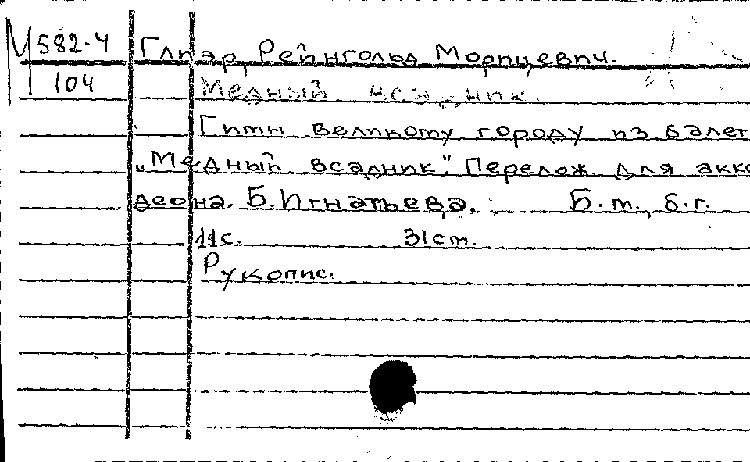 М 582-4 Глиэр Рейнгольд Морицевич.
104 Медный всадник.
Гимн великому городу из балет
„Медный всадник". Перелож. для акко
деона. Б. Игнатьева. Б.м., б.г.
11с. 31см.
Рукопис.